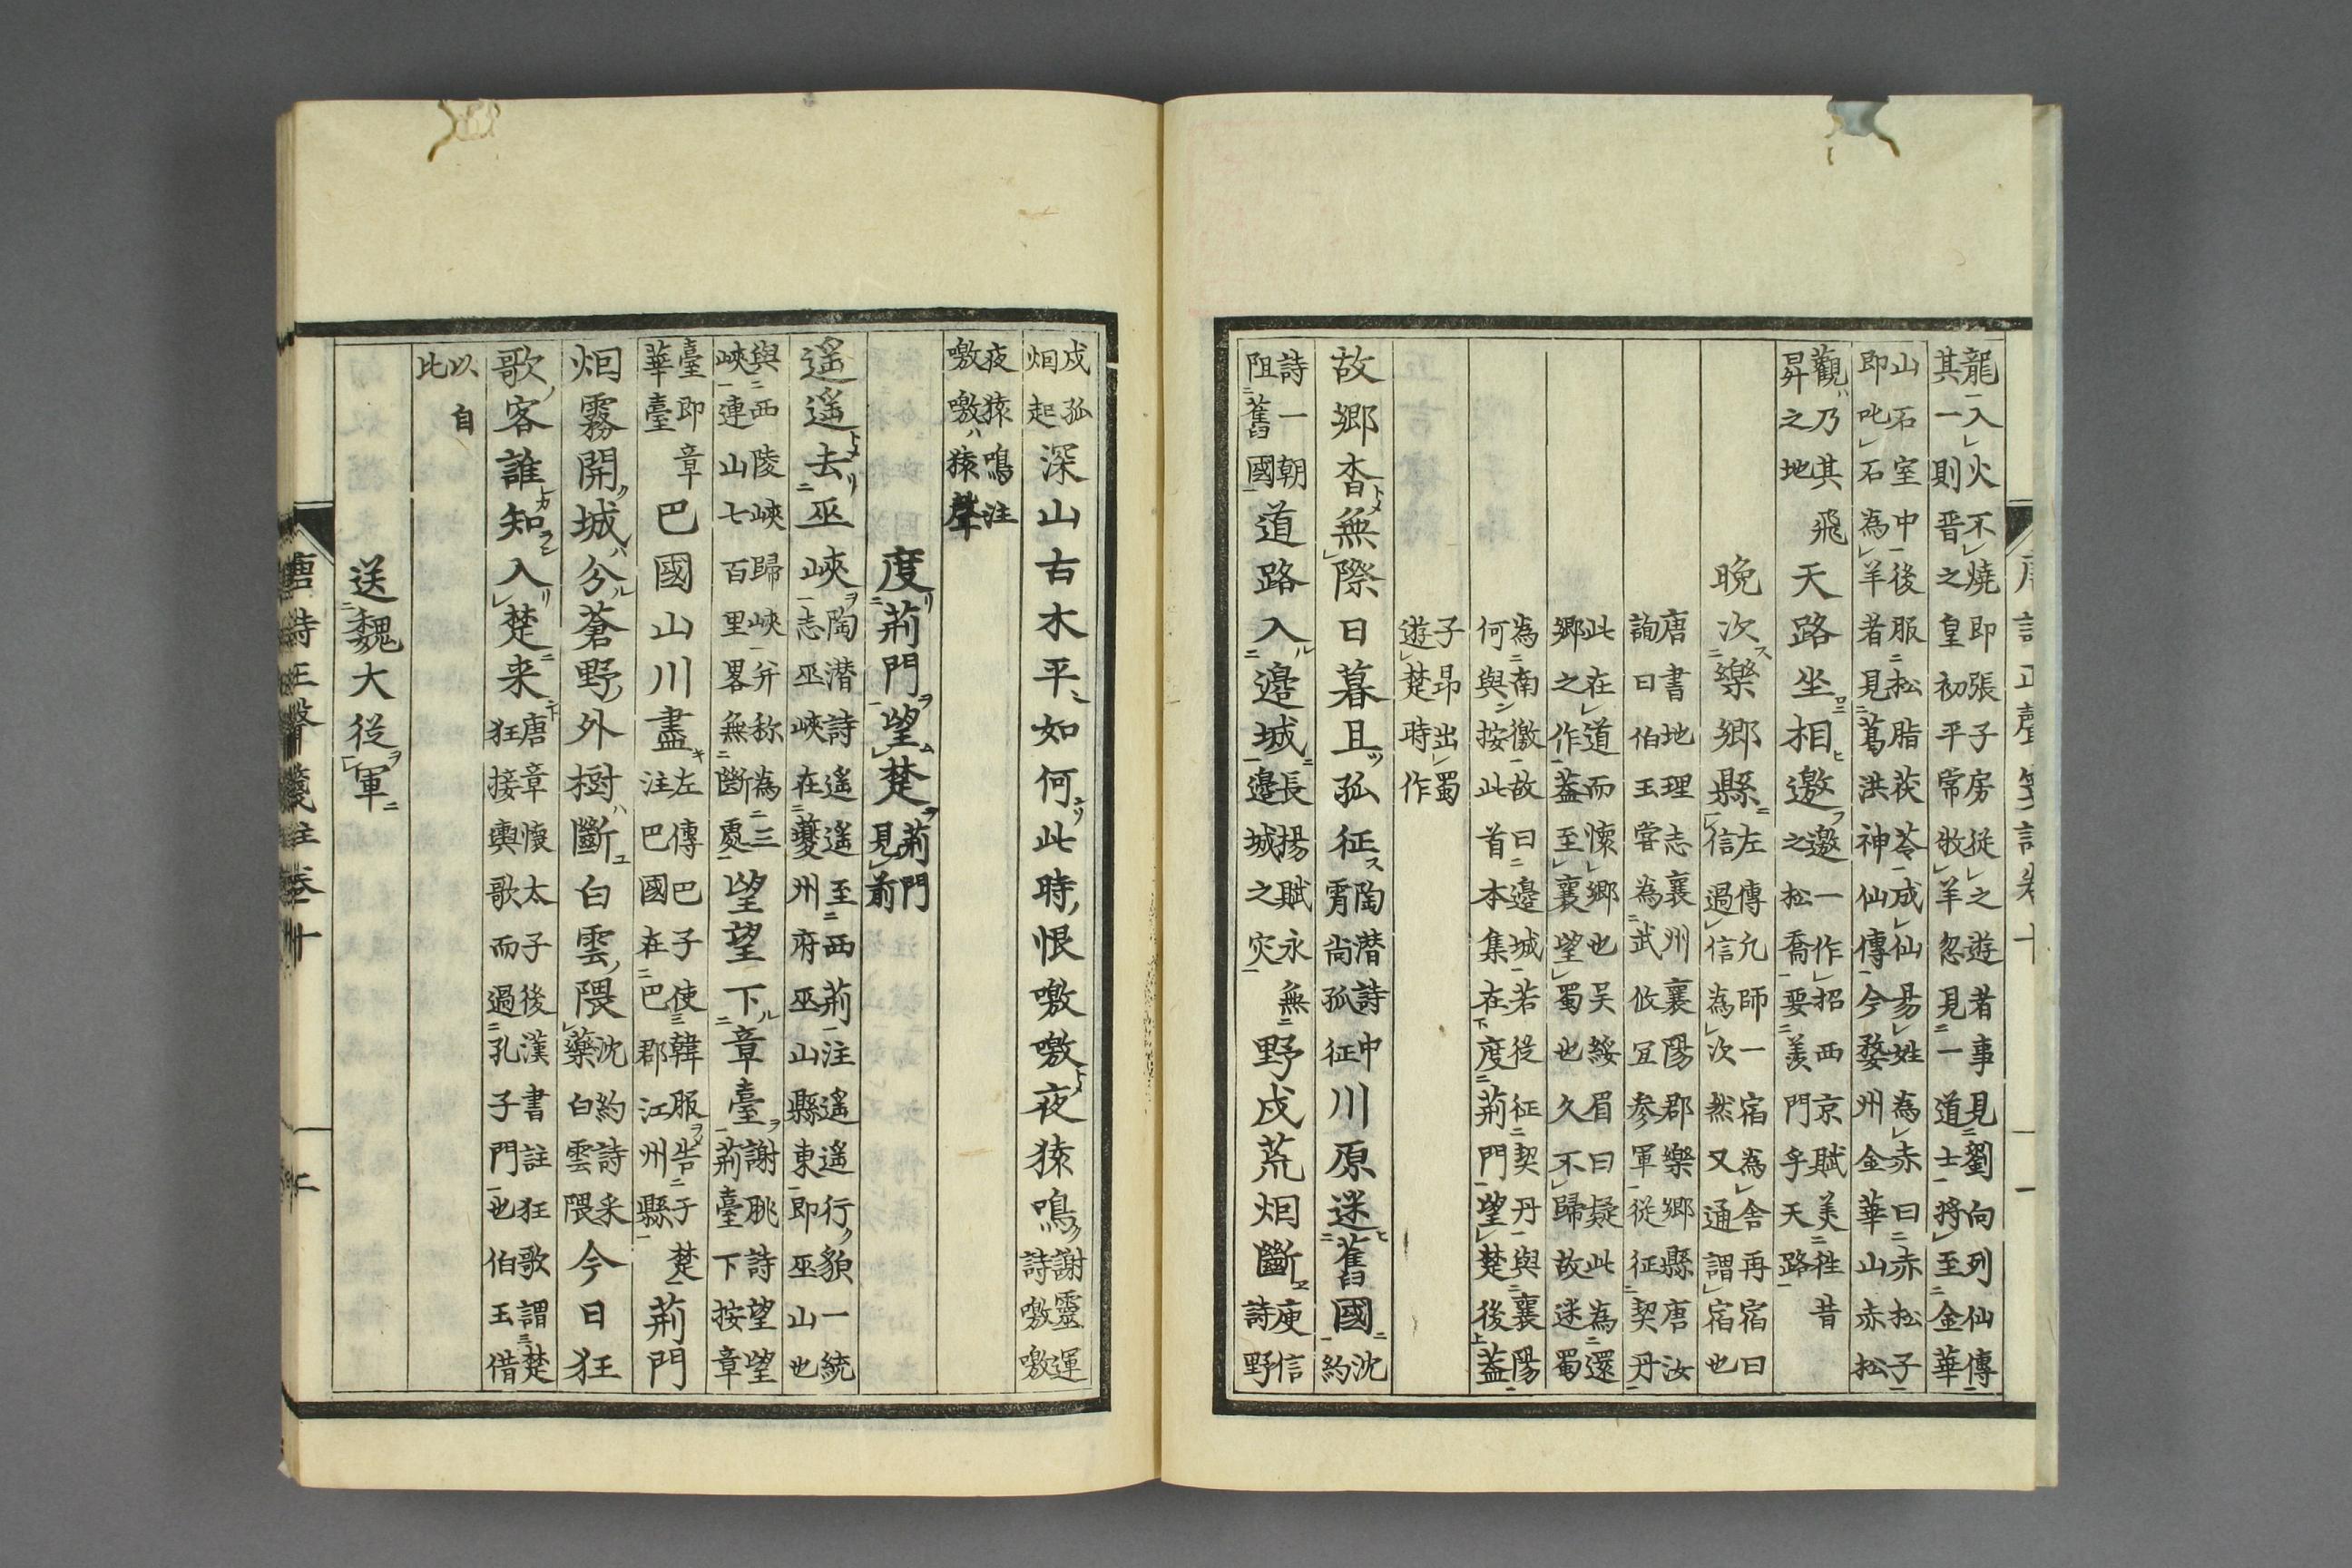 唐詩正聲箋註卷十 一
龍入火不燒即張子房從之遊者事見劉向列仙傳
其一則晋之皇初平常牧羊忽見一道士將至金華
山石室中後服松脂茯苓成仙易姓為赤曰赤松子
即叱石為羊者見葛洪神仙傳今婺州金華山赤松
觀乃其飛昇之地天路坐相邀邀一作招西京賦美徃昔之松喬要羨門乎天路
晩次樂鄉縣左傳允師一宿為舍再宿曰信過信為次然又通謂宿也
唐書地理志襄州襄陽郡樂鄉縣唐汝
詢曰伯玉嘗為武攸冝参軍從征契丹
此在道而懷鄉也吴綏眉曰疑此為還
鄉之作葢至襄望蜀也久不歸故迷蜀
為南徼故曰邊城若從征契丹與襄陽
何與按此首本集在度荊門望楚後葢
子昂出蜀
遊楚時作
故鄉杳無際日暮且孤征陶潜詩中霄尚孤征川原迷舊國沈約
詩一朝阻舊國道路入邊城長揚賦永無邊城之灾野戍荒烟斷庾信詩野
戍孤烟起深山古木平如何此時恨噭噭夜猿鳴謝靈運詩噭噭
夜猿鳴注噭噭猿聲
度荊門望楚荊門見前
遥遥去巫峽陶潜詩遥遥至西荊注遥遥行貌一統志巫峽在夔州府巫山縣東即巫山也
與西陵峽歸峽并称為三峽連山七百里畧無斷處望望下章臺謝朓詩望望荊臺下按章
臺即章華臺巴國山川盡左傳巴子使韓服告于楚注巴國在巴郡江州縣荊門
烟霧開城分蒼野外樹斷白雲隈沈約詩釆藥白雲隈今日狂
歌客誰知入楚来唐章懐太子後漢書註狂歌謂楚狂接輿歌而過孔子門也伯玉借
以自比
送魏大從軍
唐詩正聲箋註卷十 二